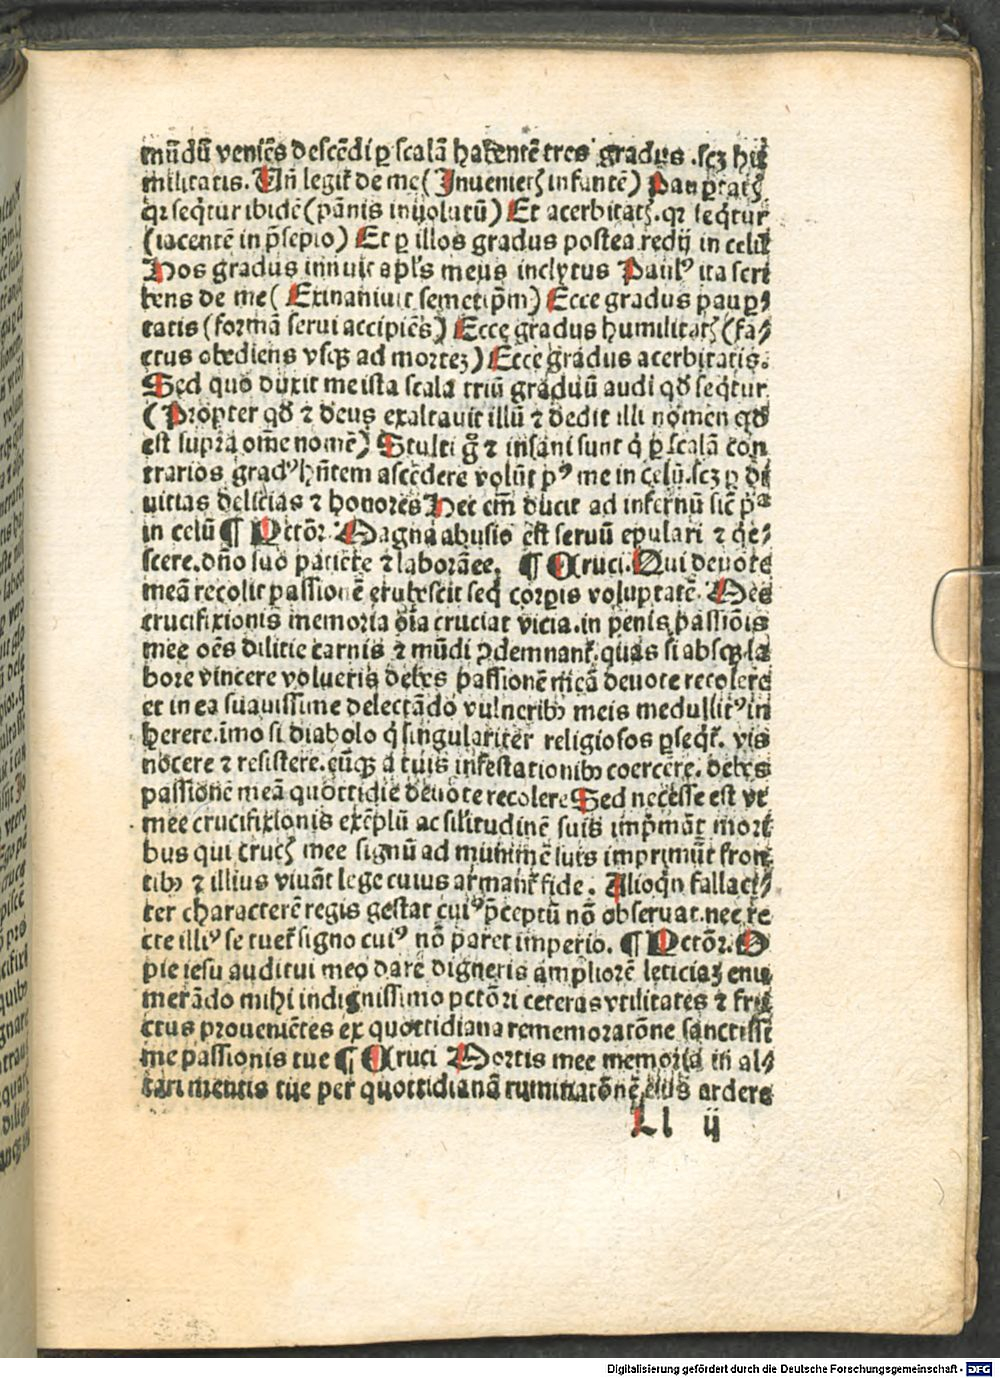 mūdū veniēs descēdi ꝑ scalā habentē tres gradus .scꝫ hu
militatis. Uñ legit̃ de me ( Inuenietꝭ infantē ) Pauꝑtatꝭ
qꝛ seq̃tur ibidē ( pānis inuolutū ) Et acerbitatꝭ. qꝛ seq̃tur
( iacentē in p̃sepio ) Et ꝑ illos gradus postea redij in celū
Hos gradus innuit apl̃s meus inclytus Paulꝰ ita scri
bens de me ( Exinaniuit semetip̃m ) Ecce gradus pauꝑ⸗
tatis ( formā serui accipiēs ) Ecce gradus humilitatꝭ ( fa⸗
ctus obediens vsqꝫ ad morteꝫ ) Ecce gradus acerbitatis.
Sed quo duxit me ista scala triū graduū audi qd̃ seq̃tur
( Propter qd̃ ⁊ deus exaltauit illū ⁊ dedit illi nomen qd̃
est supra om̃e nomē ) Stulti g̃ ⁊ insani sunt q̃ ꝑ scalā con
trarios gradꝰ hñtem ascēdere volūt pꝰ me in celū .scꝫ ꝑ di
uitias delicias ⁊ honores Hec em̃ ducit ad infernū sic̃ pᵃ
in celū ¶ Pctōr. Magna abusio est seruū epulari ⁊ q̃e⸗
scere. dño suo patiēte ⁊ laborāte. ¶ Cruci. Qui deuote
meā recolit passionē erubescit seq̃ corꝑis voluptatē. Mee
crucifixionis memoria oīa cruciat vicia. in penis passiōis
mee oēs dilitie carnis ⁊ mūdi ꝯdemnant̃. quas si absqꝫ la
bore vincere volueris debes passionē meā deuote recolere
et in ea suauissime delectādo vulneribꝰ meis medullitꝰ in
herere. imo si diabolo q̃ singulariter religiosos ꝑseq̃t̃. vis
nocere ⁊ resistere. eūqꝫ a tuis infestationibꝰ coercere. debes
passionē meā quottidie deuote recolere Sed necesse est vt
mee crucifixionis exēplū ac sil̃itudinē suis imp̃māt mori
bus qui crucꝭ mee signū ad munimē suis imprimūt fron
tibꝰ ⁊ illius viuāt lege cuius armant̃ fide. Alioqͥn fallaci⸗
ter characterē regis gestat cuiꝰ p̃ceptū nō obseruat. nec re
cte illiꝰ se tuet̃ signo cuiꝰ nō paret imperio. ¶ Pctōr. O
pie iesu auditui meo dare digneris ampliorē leticiaꝫ enu
merādo mihi indignissimo pctōri ceteras vtilitates ⁊ fru
ctus proueniētes ex quottidiana rememoratōne sanctissi
me passionis tue ¶ Cruci Mortis mee memoria in al⸗
tari mentis tue per quottidianā ruminatōnē eius ardere
Ll ij
Digitalisierung gefördert durch die Deutsche Forschungsgemeinschaft - DFG